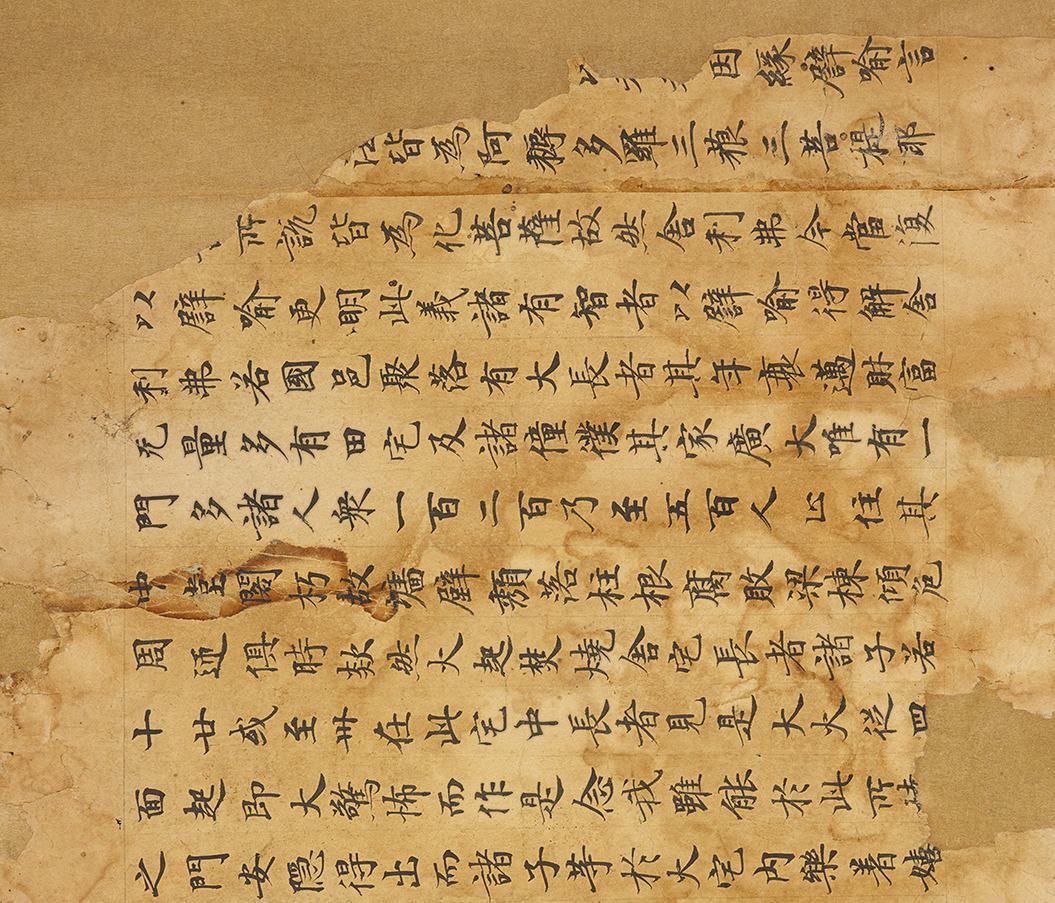 因緣譬喻言
皆為阿耨多羅三藐三菩提耶
所說皆為化菩薩故然舍利弗今當復
以譬喻更明此義諸有智者以譬喻得解舍
利弗若國邑聚落有大長者其年衰邁財富
无量多有田宅及諸僮僕其家廣大唯有一
門多諸人眾一百二百乃至五百人止住其
中堂閣朽故墻壁頹落柱根腐敗梁棟傾危
周迊俱時欻然火起焚燒舍宅長者諸子若
十廿或至卅在此宅中長者見是大火從四
面起即大驚怖而作是念我雖能於此所燒
之門安隱得出而諸子等於火宅內樂著嬉